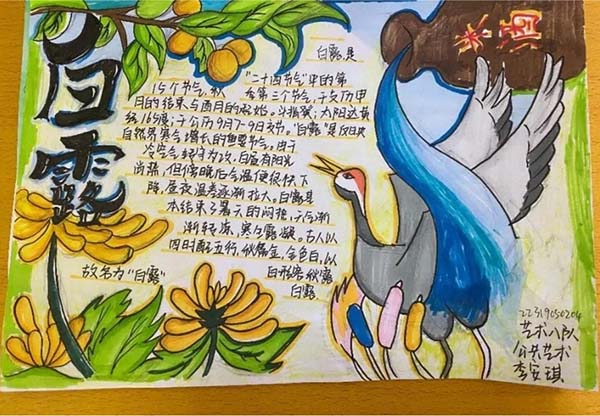 白露
米酒
白露是
15个节气,秋
"二十四节气"中的第
季第三个节气,于干支历申
月的结束与酉月的起始。斗指癸;太阳达黄
经165度;于公历9月7-9日交节。"白露"是反映
自然界寒气增长的重要节气。由于
冷空气转守为攻,白昼有阳光
尚热,但傍晚后气温便很快下
降,昼夜温差逐渐拉大。白露是
本结束了暑天的闷热,天气渐
渐转凉,寒生露凝。古人以
四时配五行,秋属金,金色白,以
白形容秋露
故名为"白露"
白露
22319050204
艺术八队
公共艺术
李安琪